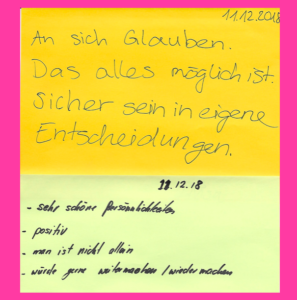 11.12.2018
An sich Glauben.
Das alles möglich ist.
Sicher sein in eigene
Entscheidungen.
11.12.18
- sehr schöne Persönlichkeiten
- positiv
- man ist nicht allein
- würde gerne weitermachen / wiedermachen